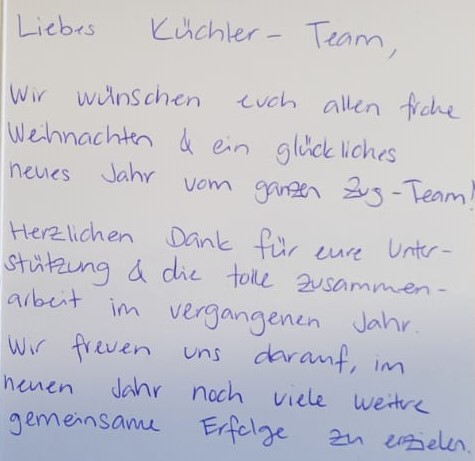 Liebes Küchler-Team,
Wir wünschen euch allen frohe
Weihnachten & ein glückliches
neues Jahr vom ganzen Zug-Team!
Herzlichen Dank für eure Unter-
stützung & die tolle Zusammen-
arbeit im vergangenen Jahr.
Wir freuen uns darauf, im
neuen Jahr noch viele weitere
gemeinsame Erfolge zu erzielen.